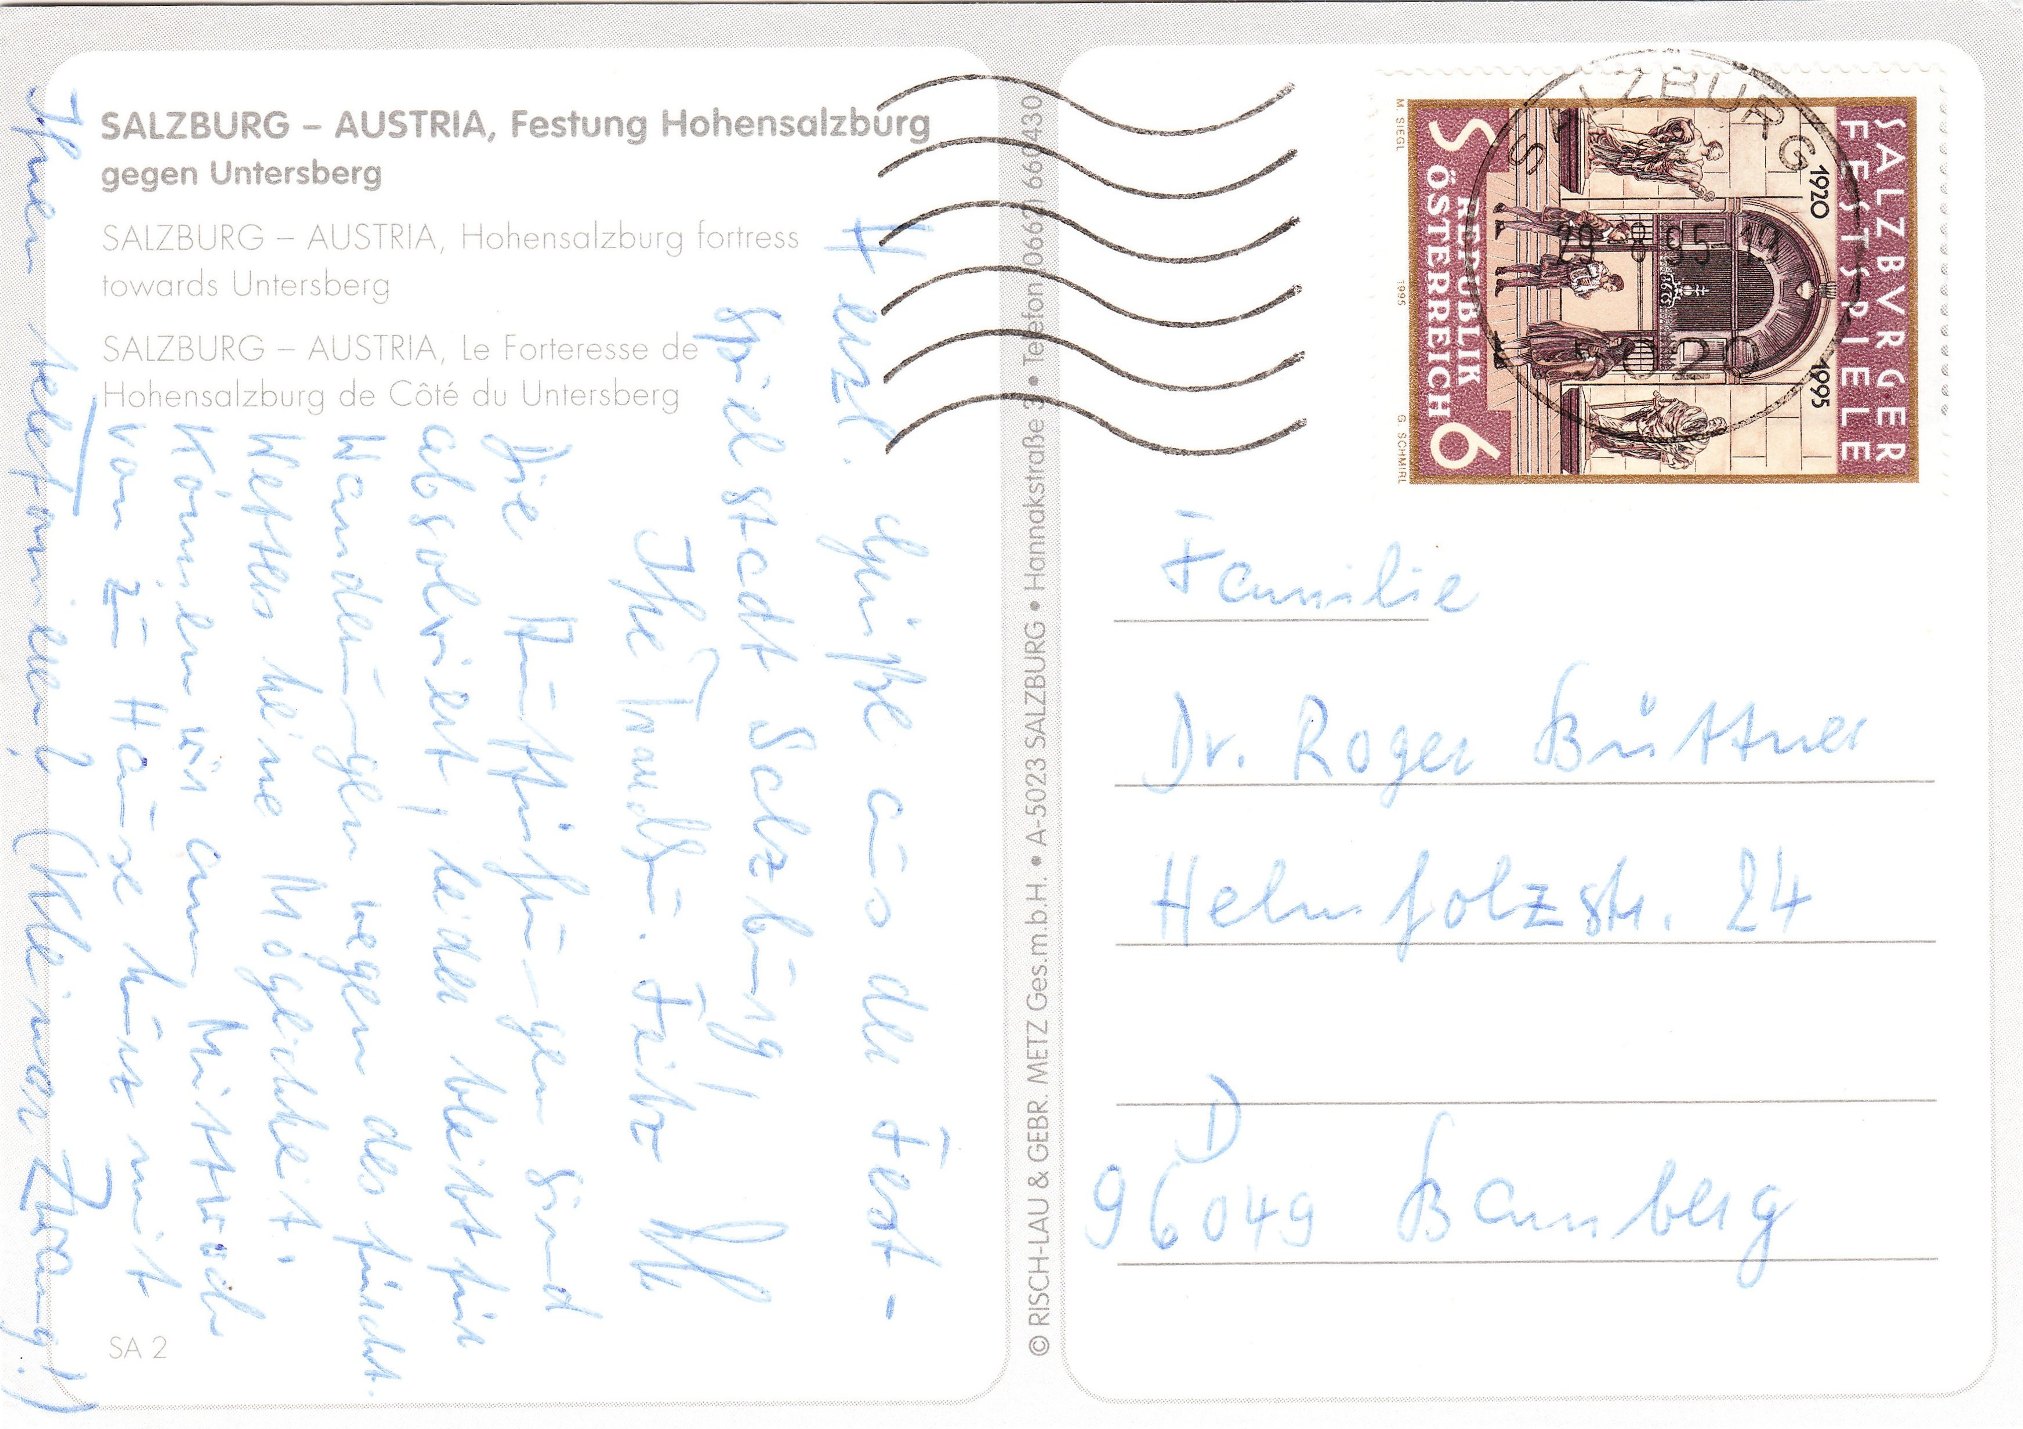 SALZBURG – AUSTRIA, Festung Hohensalzburg
gegen Untersberg
SALZBURG – AUSTRIA, Hohensalzburg fortress
towards Untersberg
SALZBURG – AUSTRIA, Le Forteresse de
Hohensalzburg de Côté du Untersberg
Herzl. Grüße aus der Fest-
spielstadt Salzburg!
Ihe Fritz
Die Aufführungen sind
absolviert, leider bleibt für
Wanderungen wegen des feucht.
Wetters keine Möglichkeit.
Können wir am Mittwoch
von zu Hause kurz mit
Ihnen telefonieren? (Kleiner Zwang!)
SA 2
© RISCH-LAU & GEBR. METZ Ges.m.b.H. • A-5023 SALZBURG • Hannakstraße 3 • Telefon (0662) 660430
SALZBVRGER
FESTSPIELE
1920
1995
REPUBLIK
ÖSTERREICH
S 6
M SIEGL
1995
G SCHMIRL
SALZBURG
29.-8.95-19
5020
Familie
Dr. Roger Büttner
Helmholzstr. 24
D
96049 Bamberg